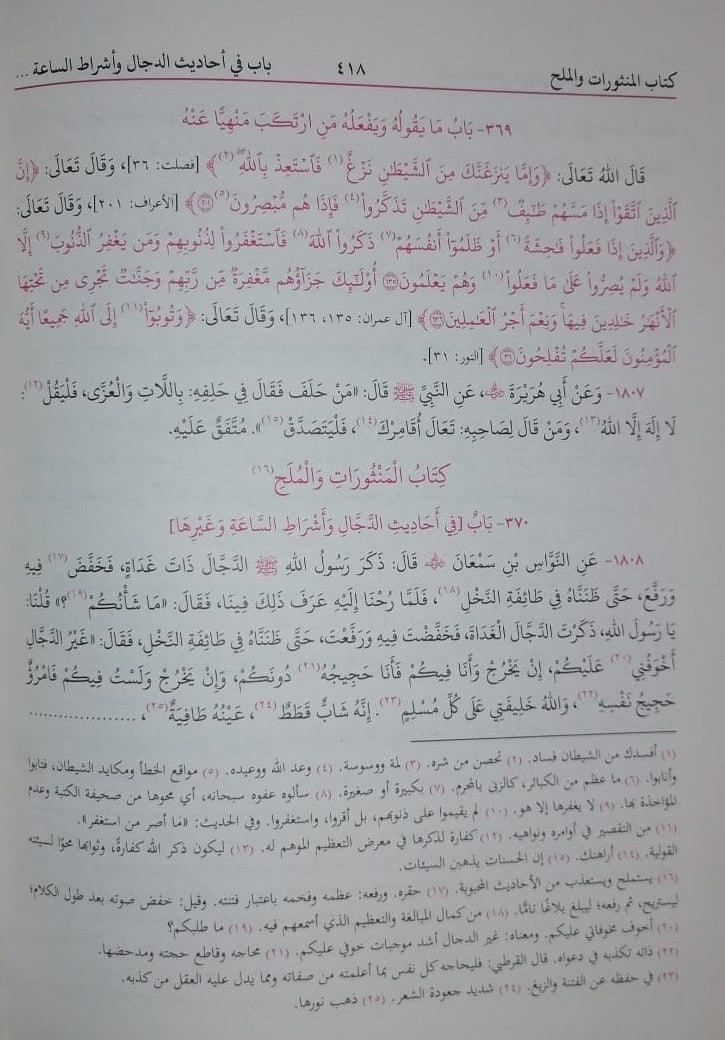 كتاب المنثورات والملح ٤١٨ باب في أحاديث الدجال وأشراط الساعة ...
٣٦٩- بَابُ مَا يَقُولُهُ وَيَفْعَلُهُ مَنِ ارْتَكَبَ مَنْهِيًّا عَنْهُ
قَالَ اللهُ تَعَالَى: ﴿وَإِمَّا يَنزَغَنَّكَ مِنَ ٱلشَّيْطَٰنِ نَزْغٌ(١) فَٱسْتَعِذْ بِٱللَّهِ(٢)﴾ [فصلت: ٣٦]، وَقَالَ تَعَالَى: ﴿إِنَّ
ٱلَّذِينَ ٱتَّقَوْا۟ إِذَا مَسَّهُمْ طَٰٓئِفٌ(٣) مِّنَ ٱلشَّيْطَٰنِ تَذَكَّرُوا۟(٤) فَإِذَا هُم مُّبْصِرُونَ(٥) ٢٠١﴾ [الأعراف: ٢٠١]، وَقَالَ تَعَالَى:
﴿وَٱلَّذِينَ إِذَا فَعَلُوا۟ فَٰحِشَةً(٦) أَوْ ظَلَمُوٓا۟ أَنفُسَهُمْ(٧) ذَكَرُوا۟ ٱللَّهَ(٨) فَٱسْتَغْفَرُوا۟ لِذُنُوبِهِمْ وَمَن يَغْفِرُ ٱلذُّنُوبَ(٩) إِلَّا
ٱللَّهُ وَلَمْ يُصِرُّوا۟ عَلَىٰ مَا فَعَلُوا۟(١٠) وَهُمْ يَعْلَمُونَ ١٣٥ أُو۟لَٰٓئِكَ جَزَآؤُهُم مَّغْفِرَةٌ مِّن رَّبِّهِمْ وَجَنَّٰتٌ تَجْرِى مِن تَحْتِهَا
ٱلْأَنْهَٰرُ خَٰلِدِينَ فِيهَا وَنِعْمَ أَجْرُ ٱلْعَٰمِلِينَ ١٣٦﴾ [آل عمران: ١٣٥، ١٣٦]، وَقَالَ تَعَالَى: ﴿وَتُوبُوٓا۟(١١) إِلَى ٱللَّهِ جَمِيعًا أَيُّهَ
ٱلْمُؤْمِنُونَ لَعَلَّكُمْ تُفْلِحُونَ ٣١﴾ [النور: ٣١].
١٨٠٧- وَعَنْ أَبِي هُرَيْرَةَ ﵁، عَنِ النَّبِيِّ ﷺ قَالَ: «مَنْ حَلَفَ فَقَالَ فِي حَلِفِهِ: بِاللَّاتِ وَالْعُزَّى، فَلْيَقُلْ(١٢):
لَا إِلَهَ إِلَّا اللهُ(١٣)، وَمَنْ قَالَ لِصَاحِبِهِ: تَعَالَ أُقَامِرْكَ(١٤)، فَلْيَتَصَدَّقْ(١٥)». مُتَّفَقٌ عَلَيْهِ.
كِتَابُ الْمَنْثُورَاتِ وَالْمُلَحِ(١٦)
٣٧٠- بَابٌ [فِي أَحَادِيثِ الدَّجَّالِ وَأَشْرَاطِ السَّاعَةِ وَغَيْرِهَا]
١٨٠٨- عَنِ النَّوَّاسِ بْنِ سَمْعَانَ ﵁ قَالَ: ذَكَرَ رَسُولُ اللهِ ﷺ الدَّجَّالَ ذَاتَ غَدَاةٍ، فَخَفَّضَ(١٧) فِيهِ
وَرَفَّعَ، حَتَّى ظَنَنَّاهُ فِي طَائِفَةِ النَّخْلِ(١٨)، فَلَمَّا رُحْنَا إِلَيْهِ عَرَفَ ذَلِكَ فِينَا، فَقَالَ: «مَا شَأْنُكُمْ(١٩)؟» قُلْنَا:
يَا رَسُولَ اللهِ، ذَكَرْتَ الدَّجَّالَ الْغَدَاةَ، فَخَفَّضْتَ فِيهِ وَرَفَّعْتَ، حَتَّى ظَنَنَّاهُ فِي طَائِفَةِ النَّخْلِ، فَقَالَ: «غَيْرُ الدَّجَّالِ
أَخْوَفُنِي(٢٠) عَلَيْكُمْ، إِنْ يَخْرُجْ وَأَنَا فِيكُمْ فَأَنَا حَجِيجُهُ(٢١) دُونَكُمْ، وَإِنْ يَخْرُجْ وَلَسْتُ فِيكُمْ فَامْرُؤٌ
حَجِيجُ نَفْسِهِ(٢٢)، وَاللهُ خَلِيفَتِي عَلَى كُلِّ مُسْلِمٍ(٢٣). إِنَّهُ شَابٌّ قَطَطٌ(٢٤)، عَيْنُهُ طَافِيَةٌ(٢٥)، ..................
(١) أفسدك من الشيطان فساد. (٢) تحصن من شره. (٣) لمة ووسوسة. (٤) وعد الله ووعيده. (٥) مواقع الخطأ ومكايد الشيطان، فتابوا
وأنابوا. (٦) ما عظم من الكبائر، كالزنى بالمحرم. (٧) بكبيرة أو صغيرة. (٨) سألوه عفوه سبحانه، أي محوها من صحيفة الكتبة وعدم
المؤاخذة بها. (٩) لا يغفرها إلا هو. (١٠) لم يقيموا على ذنوبهم، بل أقروا، واستغفروا. وفي الحديث: «ما أصر من استغفر».
(١١) من التقصير في أوامره ونواهيه. (١٢) كفارة لذكرها في معرض التعظيم الموهم له. (١٣) ليكون ذكر الله كفارة، وثوابها محوًا لسيئته
القولية. (١٤) أراهنك. (١٥) إن الحسنات يذهبن السيئات.
(١٦) يستملح ويستعذب من الأحاديث المحبوبة. (١٧) حقره. ورفعه: عظمه وفخمه باعتبار فتنته. وقيل: خفض صوته بعد طول الكلام؛
ليستريح، ثم رفعه؛ ليبلغ بلاغًا تامًا. (١٨) من كمال المبالغة والتعظيم الذي أسمعهم فيه. (١٩) ما طلبكم؟
(٢٠) أخوف مخوفاتي عليكم. ومعناه: غير الدجال أشد موجبات خوفي عليكم. (٢١) محاجه وقاطع حجته ومدحضها.
(٢٢) ذاته تكذبه في دعواه. قال القرطبي: فليحاجه كل نفس بما أعلمته من صفاته ومما يدل عليه العقل من كذبه.
(٢٣) في حفظه عن الفتنة والزيغ. (٢٤) شديد جعودة الشعر. (٢٥) ذهب نورها.